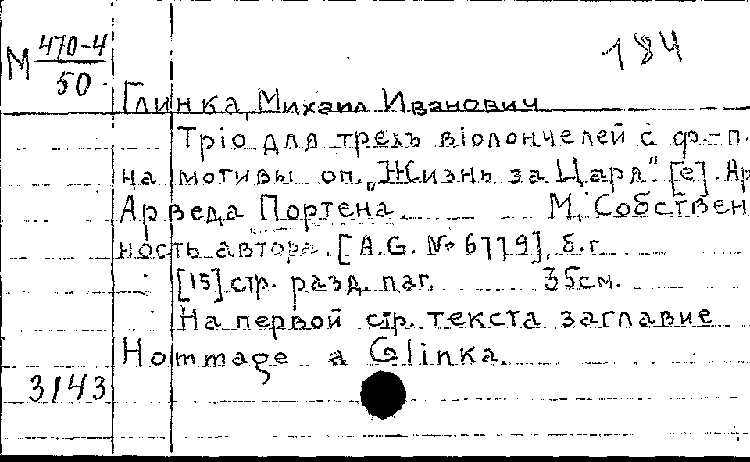 М 470-4
50
184
Глинка, Михаил Иванович
Трiо для трехъ вiолончелей с ф-п.
на мотивы оп. „Жизнь за Царя". [e]. Ар
Арведа Портена М. Собствен
ность автора. [A.G. № 6779], б.г
[15] стр. разд. паг. 35см.
На первой стр. текста заглавие
Hommage a Glinka.
3143